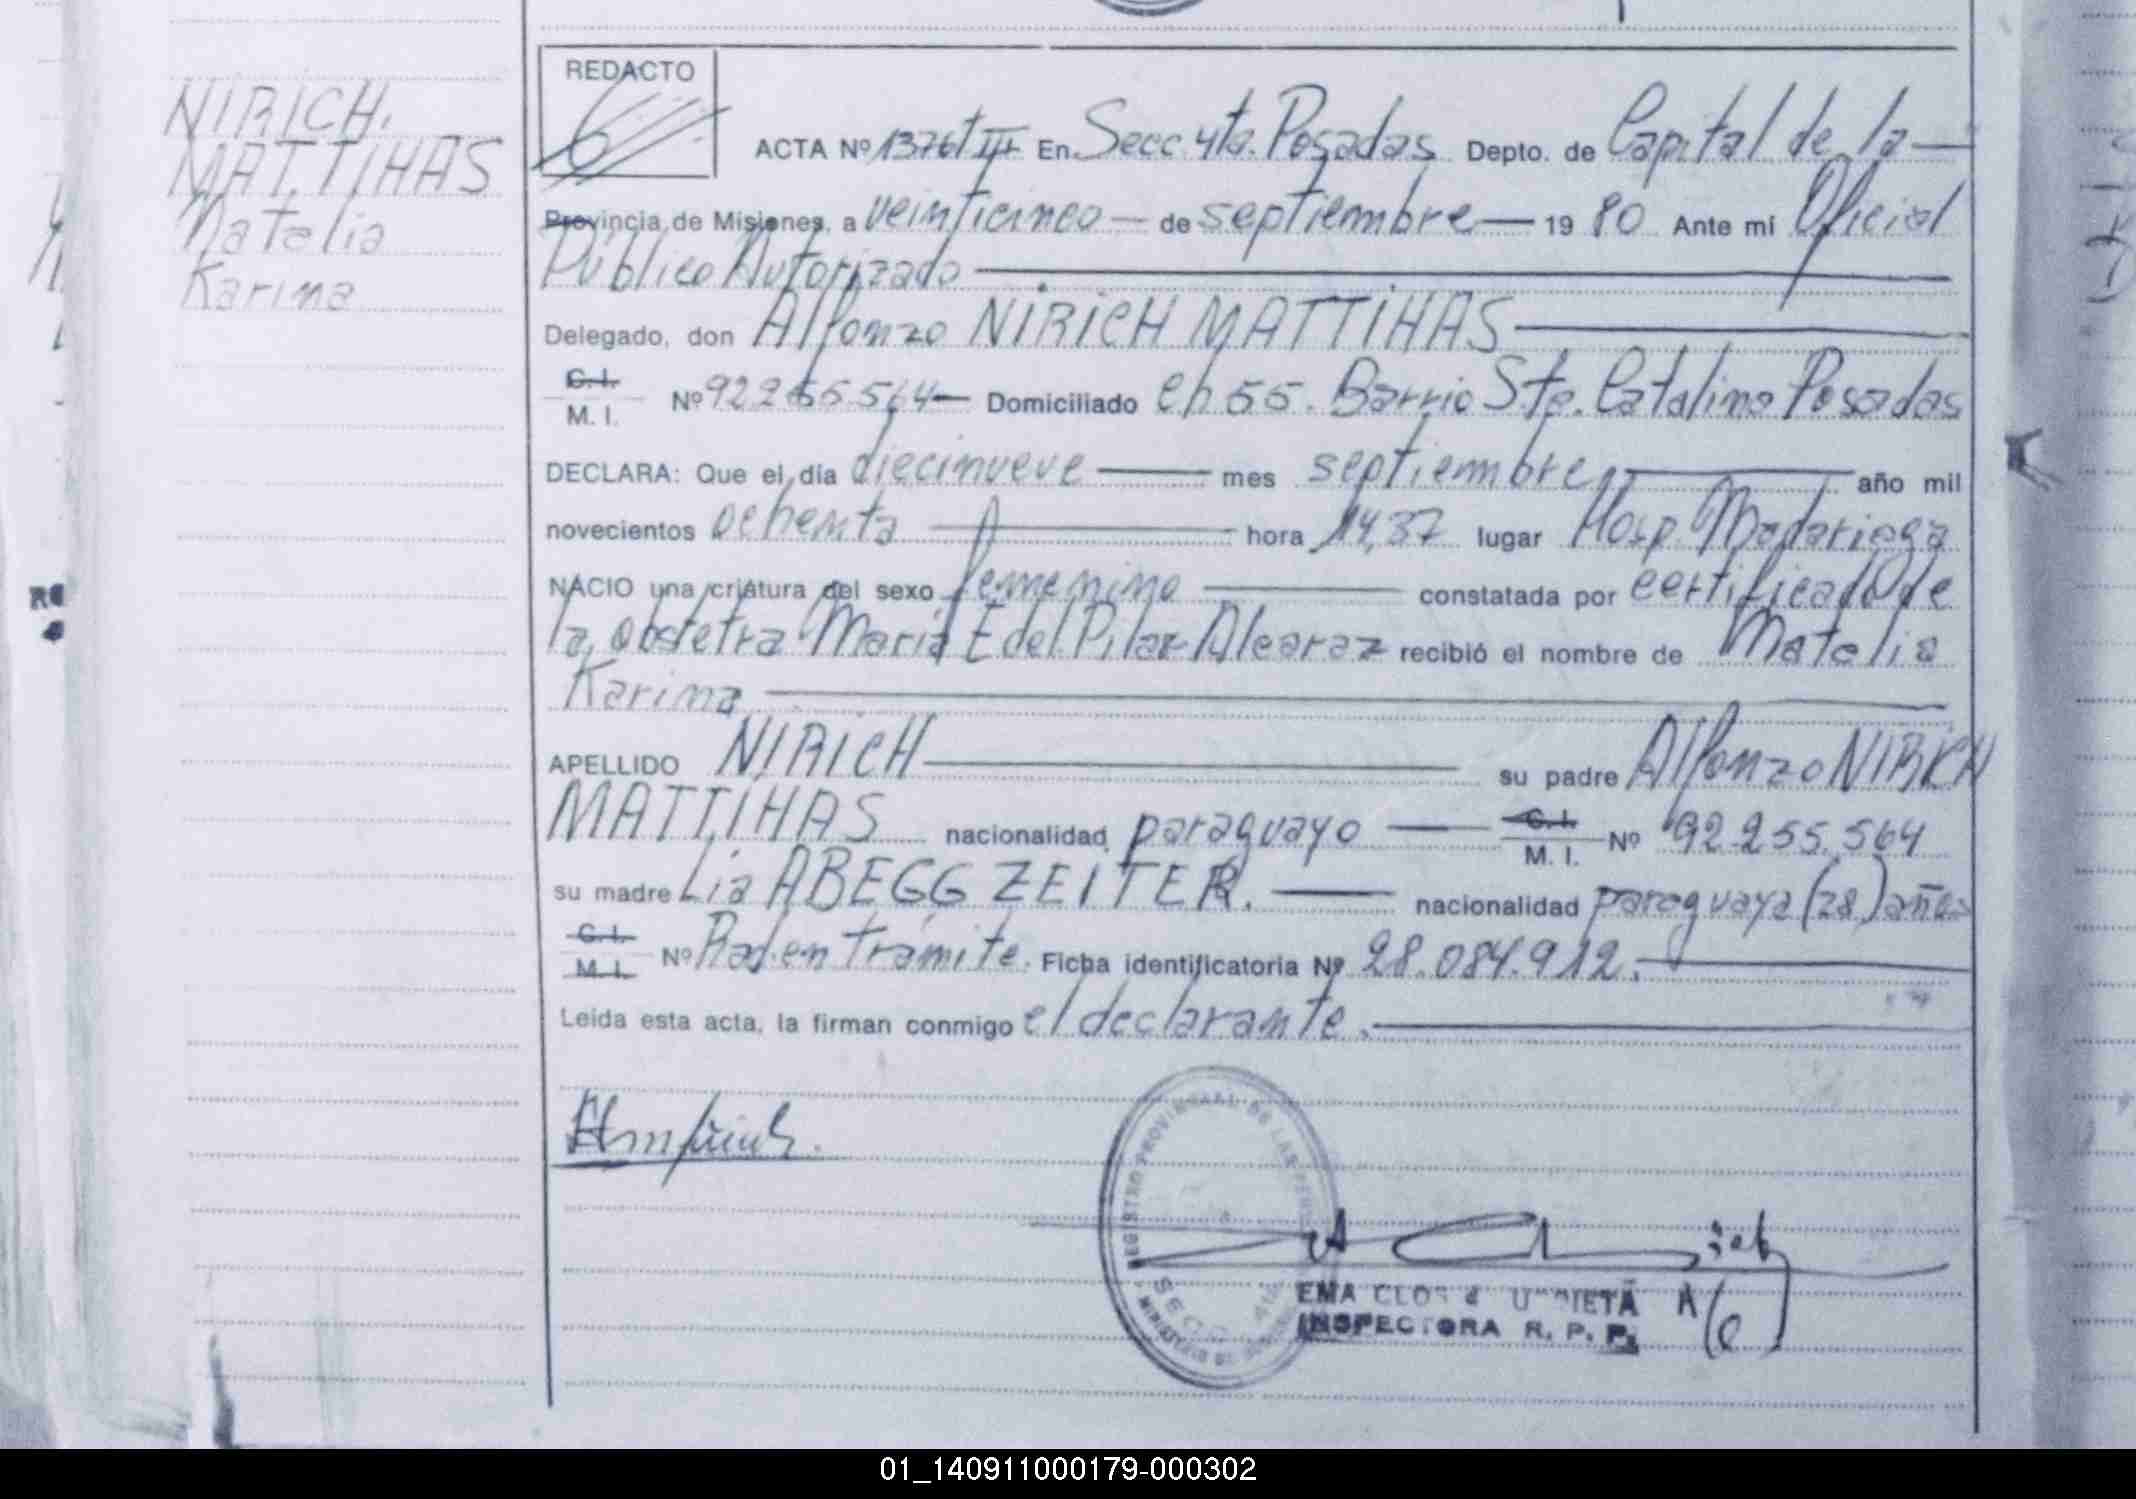 NIRICH.
MATTIHAS
Natalia
Karina
REDACTO
ACTA Nº 1376 T III En Secc. 4ta. Posadas Depto. de Capital de la
Provincia de Misiones, a veinticinco de septiembre 19 80 Ante mi Oficial
Público Autorizado
Delegado, don Alfonzo NIRICH MATTIHAS
C. I.
M. I. Nº 92.255.564 Domiciliado Ch 55. Barrio Sta. Catalina Posadas
DECLARA: Que el día diecinueve mes septiembre año mil
novecientos ochenta hora 14,37 lugar Hosp. Madariaga
NACIO una criatura del sexo femenino constatada por certificado de
la obstetra María E del Pilar Alcaraz recibió el nombre de Natalia
Karina
APELLIDO NIRICH su padre Alfonzo NIRICH
MATTIHAS nacionalidad paraguayo C. I. M. I. Nº 92.255.564
su madre Lia ABEGG ZEITER. nacionalidad paraguaya (28) años
C. I.
M. I. Nº Rad. en trámite. Ficha identificatoria Nº 28.084.912.
Leída esta acta, la firman conmigo el declarante.
REGISTRO PROVINCIAL DE LAS PERSONAS
EMA CLOS
INSPECTORA R. P. P.
01_140911000179-000302